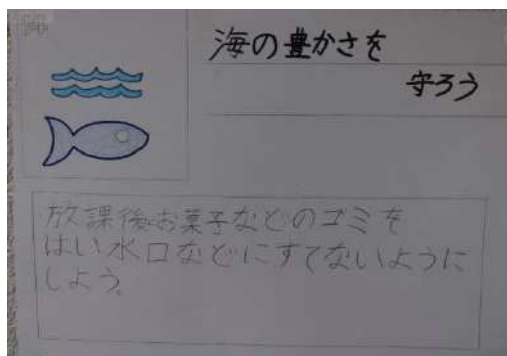 14
海の豊かさを
守ろう
放課後お菓子などのゴミを
はい水口などにすてないように
しよう。